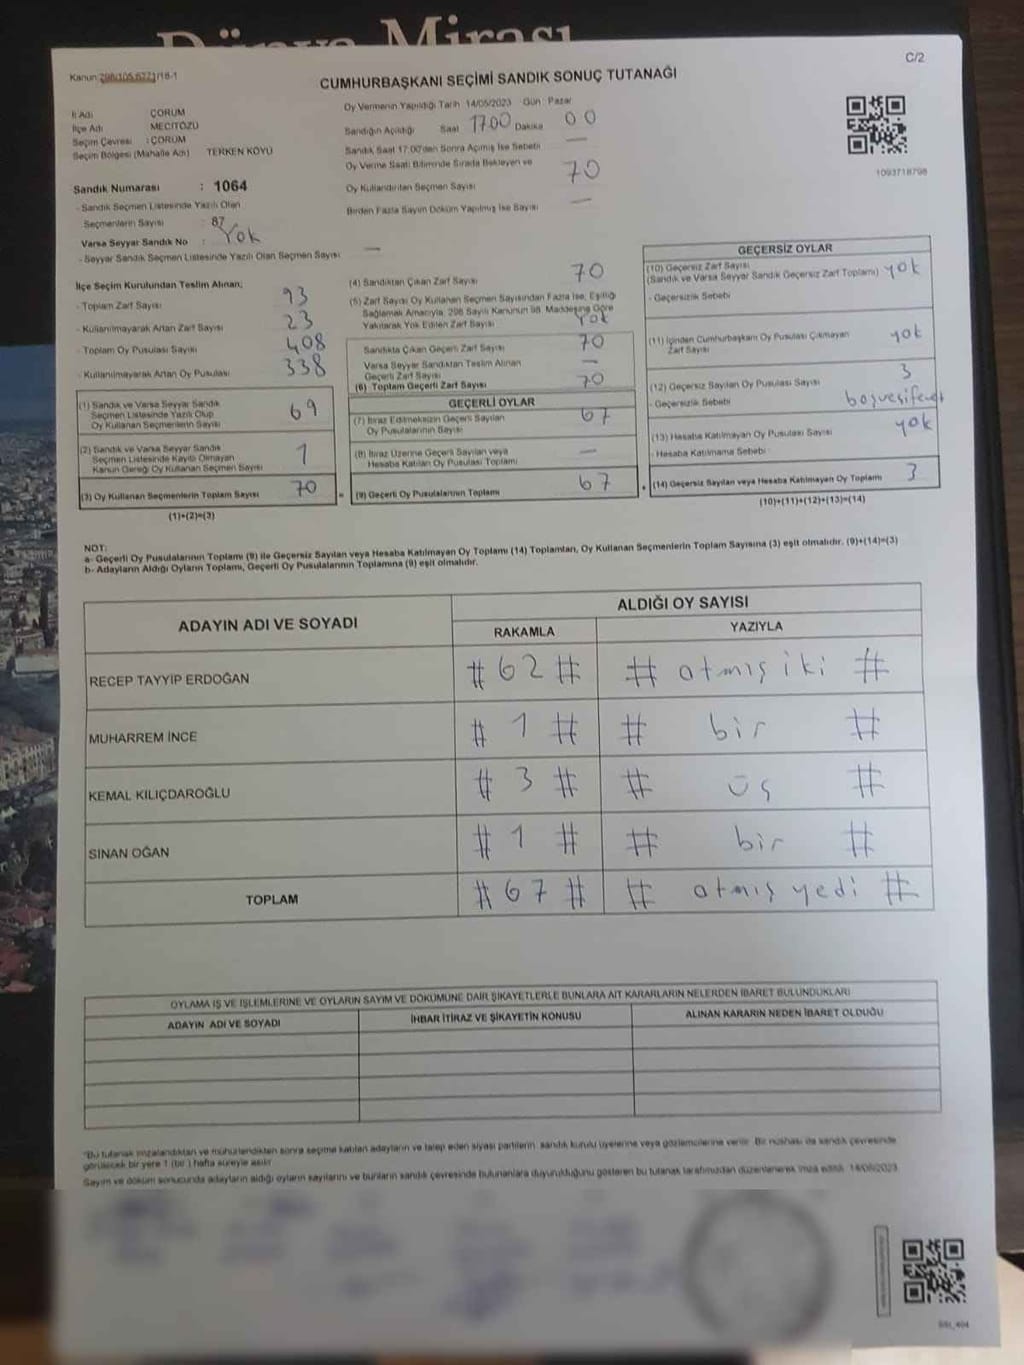 Dünya Mirası
C/2
Kanun: 298/105,6271/16-1
CUMHURBAŞKANI SEÇİMİ SANDIK SONUÇ TUTANAĞI
İl Adı ÇORUM
İlçe Adı MECİTÖZÜ
Seçim Çevresi : ÇORUM
Seçim Bölgesi (Mahalle Adı) TERKEN KÖYÜ
Oy Vermenin Yapıldığı Tarih 14/05/2023 Gün : Pazar
Sandığın Açıldığı Saat 1700 Dakika 00
Sandık Saat 17:00'den Sonra Açılmış İse Sebebi —
Oy Verme Saati Bitiminde Sırada Bekleyen ve
Oy Kullandırılan Seçmen Sayısı 70
Birden Fazla Sayım Döküm Yapılmış İse Sayısı —
1093718798
Sandık Numarası : 1064
- Sandık Seçmen Listesinde Yazılı Olan
Seçmenlerin Sayısı : 87
Varsa Seyyar Sandık No : Yok
- Seyyar Sandık Seçmen Listesinde Yazılı Olan Seçmen Sayısı —
İlçe Seçim Kurulundan Teslim Alınan;
- Toplam Zarf Sayısı 93
- Kullanılmayarak Artan Zarf Sayısı 23
- Toplam Oy Pusulası Sayısı 408
- Kullanılmayarak Artan Oy Pusulası 338
(1) Sandık ve Varsa Seyyar Sandık
Seçmen Listesinde Yazılı Olup
Oy Kullanan Seçmenlerin Sayısı 69
(2) Sandık ve Varsa Seyyar Sandık
Seçmen Listesinde Kayıtlı Olmayan
Kanun Gereği Oy Kullanan Seçmen Sayısı 1
(3) Oy Kullanan Seçmenlerin Toplam Sayısı 70
(1)+(2)=(3)
(4) Sandıktan Çıkan Zarf Sayısı 70
(5) Zarf Sayısı Oy Kullanan Seçmen Sayısından Fazla İse, Eşitliği
Sağlamak Amacıyla, 298 Sayılı Kanunun 98. Maddesine Göre
Yakılarak Yok Edilen Zarf Sayısı Yok
Sandıkta Çıkan Geçerli Zarf Sayısı 70
Varsa Seyyar Sandıktan Teslim Alınan
Geçerli Zarf Sayısı —
(6) Toplam Geçerli Zarf Sayısı 70
GEÇERLİ OYLAR
(7) İtiraz Edilmeksizin Geçerli Sayılan
Oy Pusulalarının Sayısı 67
(8) İtiraz Üzerine Geçerli Sayılan veya
Hesaba Katılan Oy Pusulası Toplamı —
= (9) Geçerli Oy Pusulalarının Toplamı 67
GEÇERSİZ OYLAR
(10) Geçersiz Zarf Sayısı
(Sandık ve Varsa Seyyar Sandık Geçersiz Zarf Toplamı) yok
- Geçersizlik Sebebi
(11) İçinden Cumhurbaşkanı Oy Pusulası Çıkmayan
Zarf Sayısı yok
(12) Geçersiz Sayılan Oy Pusulası Sayısı 3
- Geçersizlik Sebebi
(13) Hesaba Katılmayan Oy Pusulası Sayısı yok
- Hesaba Katılmama Sebebi
+ (14) Geçersiz Sayılan veya Hesaba Katılmayan Oy Toplamı 3
(10)+(11)+(12)+(13)=(14)
NOT:
a- Geçerli Oy Pusulalarının Toplamı (9) ile Geçersiz Sayılan veya Hesaba Katılmayan Oy Toplamı (14) Toplamları, Oy Kullanan Seçmenlerin Toplam Sayısına (3) eşit olmalıdır. (9)+(14)=(3)
b- Adayların Aldığı Oyların Toplamı, Geçerli Oy Pusulalarının Toplamına (9) eşit olmalıdır.
ADAYIN ADI VE SOYADI
ALDIĞI OY SAYISI
RAKAMLA YAZIYLA
RECEP TAYYİP ERDOĞAN # 62 # # atmış iki #
MUHARREM İNCE # 1 # # bir #
KEMAL KILIÇDAROĞLU # 3 # # üç #
SİNAN OĞAN # 1 # # bir #
TOPLAM # 67 # # atmış yedi #
OYLAMA İŞ VE İŞLEMLERİNE VE OYLARIN SAYIM VE DÖKÜMÜNE DAİR ŞİKAYETLERLE BUNLARA AİT KARARLARIN NELERDEN İBARET BULUNDUKLARI
ADAYIN ADI VE SOYADI İHBAR İTİRAZ VE ŞİKAYETİN KONUSU ALINAN KARARIN NEDEN İBARET OLDUĞU
*Bu tutanak imzalandıktan ve mühürlendikten sonra seçime katılan adayların ve talep eden siyasi partilerin sandık kurulu üyelerine veya gözlemcilerine verilir. Bir nüshası da sandık çevresinde
görülecek bir yere 1 (bir ) hafta süreyle asılır.
Sayım ve döküm sonucunda adayların aldığı oyların sayılarını ve bunların sandık çevresinde bulunanlara duyurulduğunu gösteren bu tutanak tarafımızdan düzenlenerek imza edildi. 14/05/2023